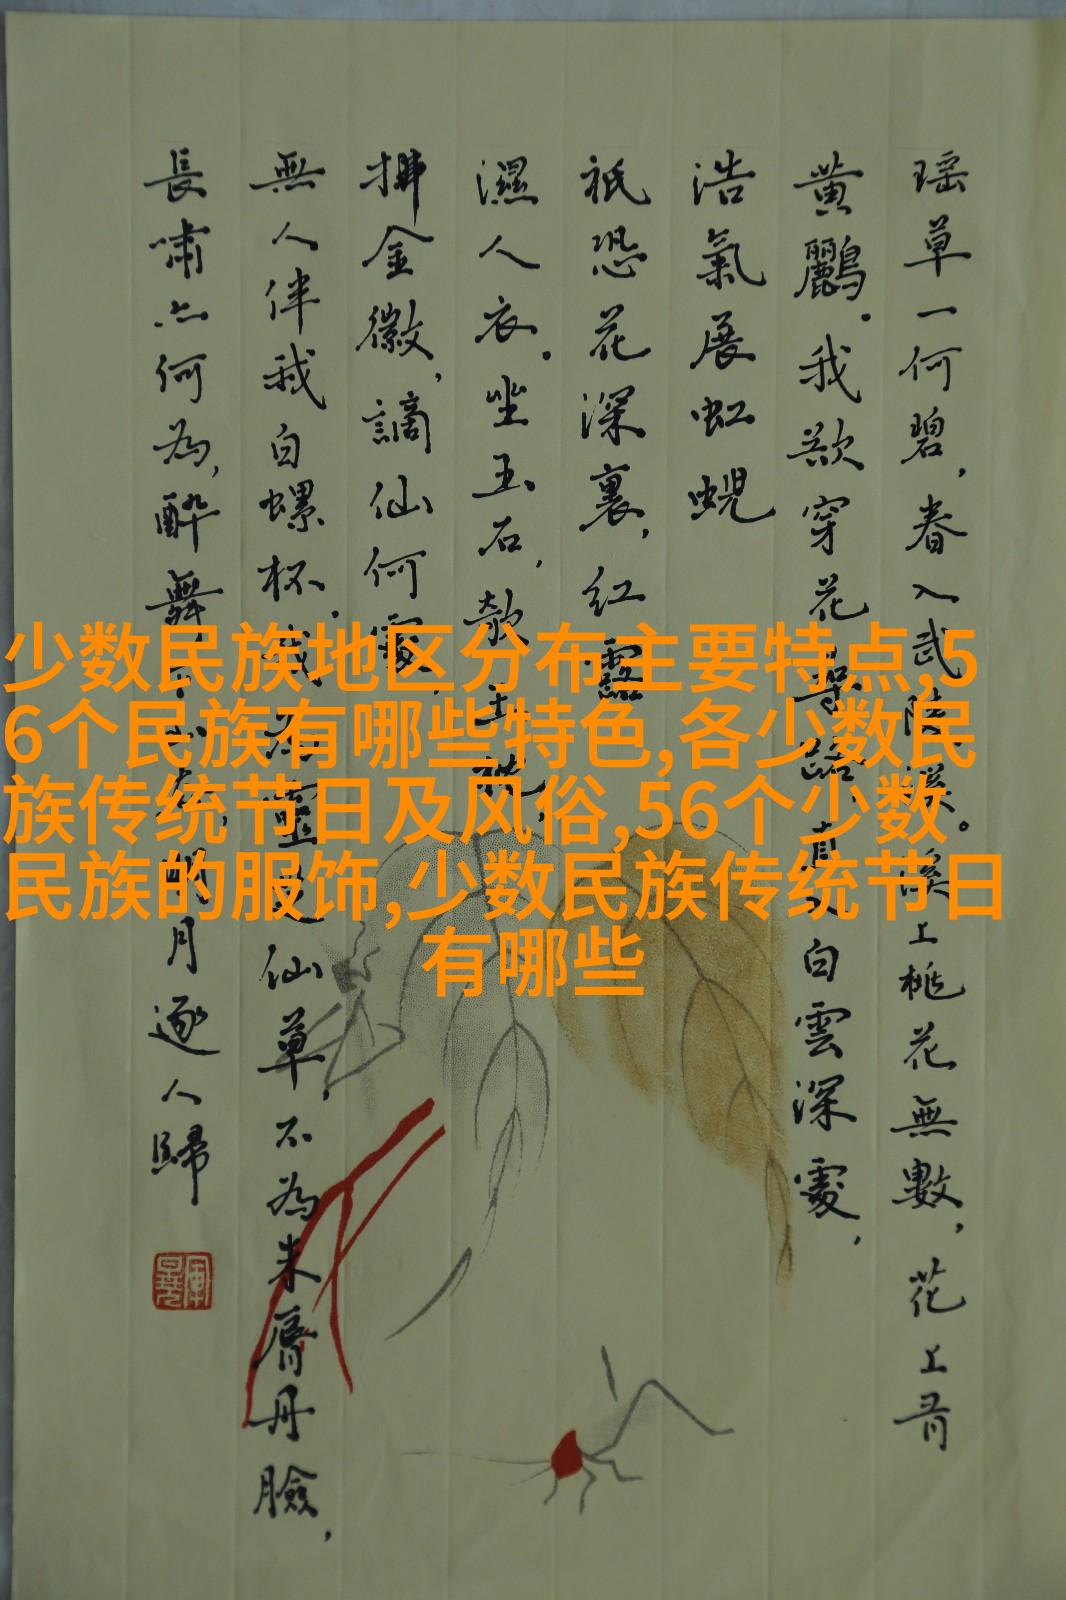 瑶草一何碧，春入武陵溪。溪上桃花無數，花上有
黄鸝。我欲穿花尋路，直入白雲深處，
浩氣展虹蜺
祇恐花深裏，紅露
濕人衣。坐玉石，欹玉枕，
拂金徽，謫仙何處，
無人伴我白螺杯。我為靈芝仙草，不為朱脣丹臉，
長嘯亦何為，醉舞下山去，明月逐人歸
少数民族地区分布主要特点,5
6个民族有哪些特色,各少数民
族传统节日及风俗,56个少数
民族的服饰,少数民族传统节日
有哪些